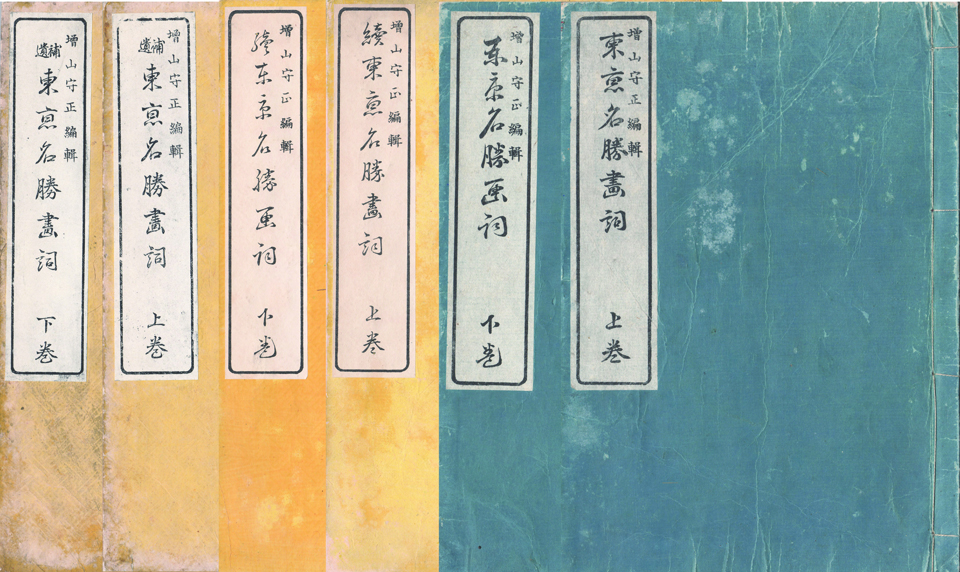 増山守正編輯
東亰名勝畫詞 上巻
増山守正編輯
東京名勝画詞 下巻
増山守正編輯
續東亰名勝畫詞 上巻
増山守正編輯
續東京名勝画詞 下巻
増山守正編輯
補遺東亰名勝畫詞 上巻
増山守正編輯
補遺東亰名勝畫詞 下巻